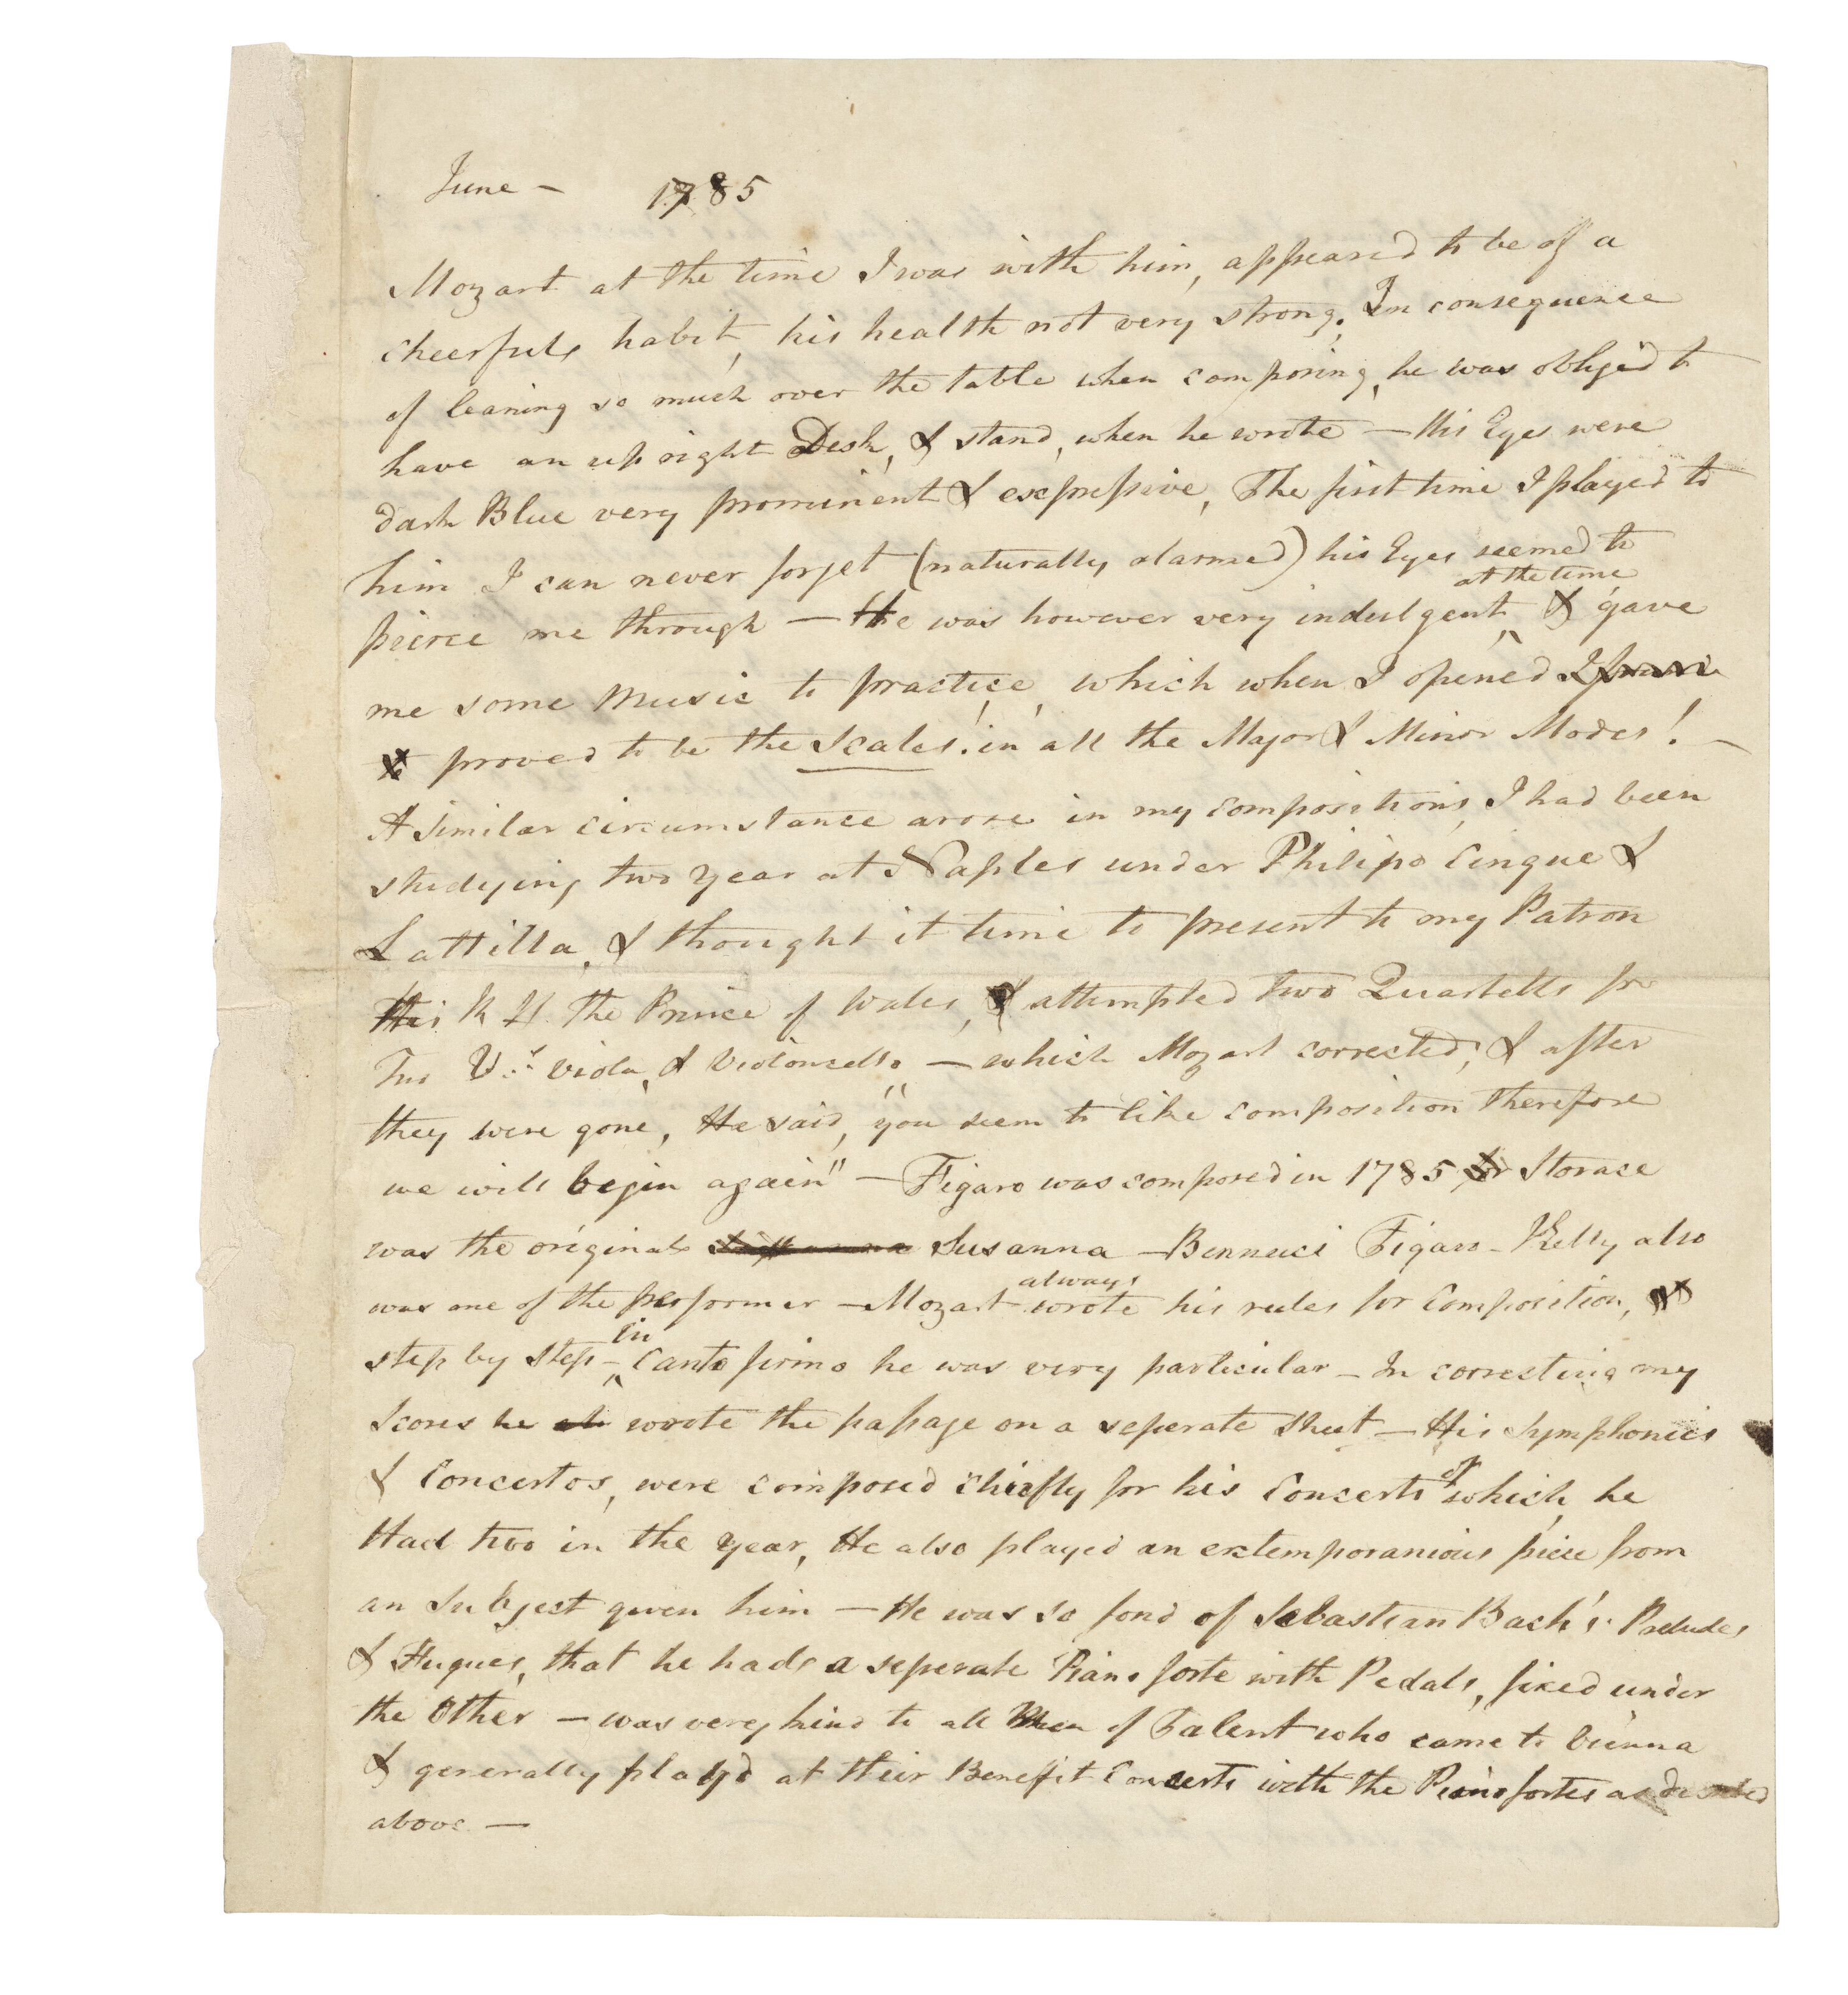 June – 1785
Mozart at the time I was with him, appeared to be of a
cheerful habit, his health not very strong. In consequence
of leaning so much over the table when composing, he was obliged to
have an upright Desk, & stand, when he wrote — His Eyes were
dark Blue very prominent & expressive, The first time I played to
him I can never forget (naturally alarmed) his Eyes seemed to
pierce me through — He was however very indulgent, at the time & gave
me some Music to practice, which when I opened
proved to be the Scales! in all the Major & Minor Modes! –
A similar circumstance arose in my compositions, I had been
studying two year at Naples under Philipo Cinque &
Lattilla, & thought it time to present to my Patron
His R H. the Prince of Wales, & attempted two Quartetts for
Two Vs. Viola, & Violoncello, — which Mozart corrected; & after
they were gone, He said, "you seem to like composition therefore
we will begin again" — Figaro was composed in 1785 Storace
was the original Susanna — Bennuci Figaro – Kelly also
was one of the performer — Mozart always wrote his rules for Composition,
step by step – in Canto firmo he was very particular – In correcting my
Scores he wrote the passage on a seperate sheet — His Symphonies
& Concertos, were composed chiefly for his Concerts of which, he
Had two in the year, He also played an extemporanious piece from
an Subject given him — He was so fond of Sebastian Bach's Preludes
& Fugues, that he had a seperate Piano forte with Pedals, fixed under
the Other — was very kind to all Men of Talent who came to Vienna
& generally play'd at their Benefit Concerts with the Piano fortes as
above. —